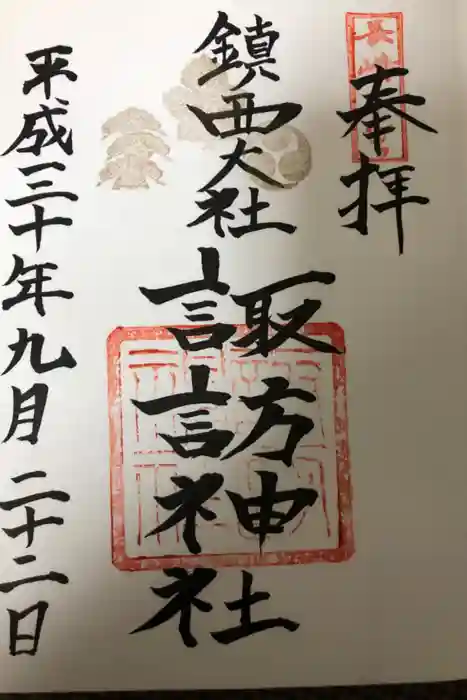 奉拝
鎮西大社
諏訪神社
平成三十年九月二十二日